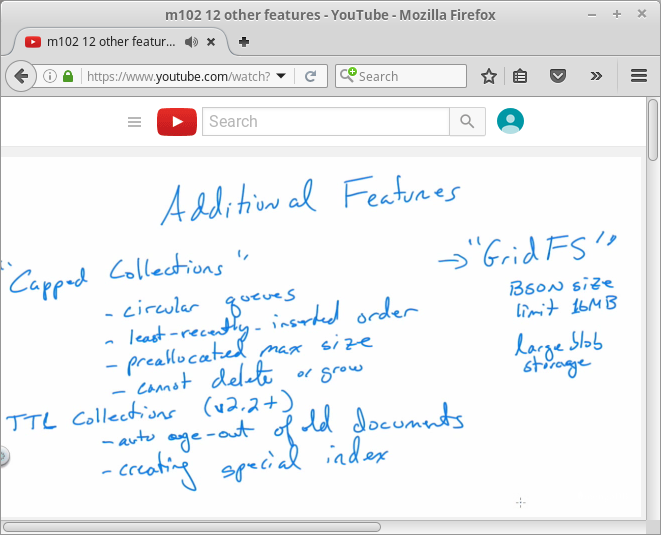 m102 12 other features - YouTube - Mozilla Firefox
m102 12 other featur...
https://www.youtube.com/watch?
Search
Search
Additional Features
"Capped Collections"
- circular queues
- least-recently-inserted order
- preallocated max size
- cannot delete or grow
TTL Collections (v2.2+)
- auto age-out of old documents
- creating special index
→ "GridFS"
BSON size
limit 16MB
large blob
storage